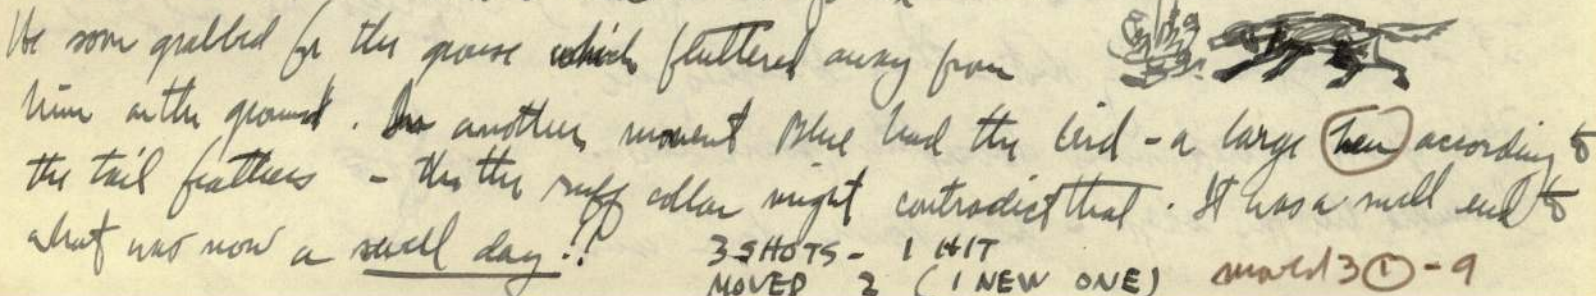 He soon grabbed for the grouse which fluttered away from
him on the ground. In another moment Blue had the bird - a large hen according to
the tail feathers - tho the ruff collar might contradict that. It was a swell end to
what was now a swell day!!
3 SHOTS - 1 HIT
MOVED 2 (1 NEW ONE) moved 3 ① - 9